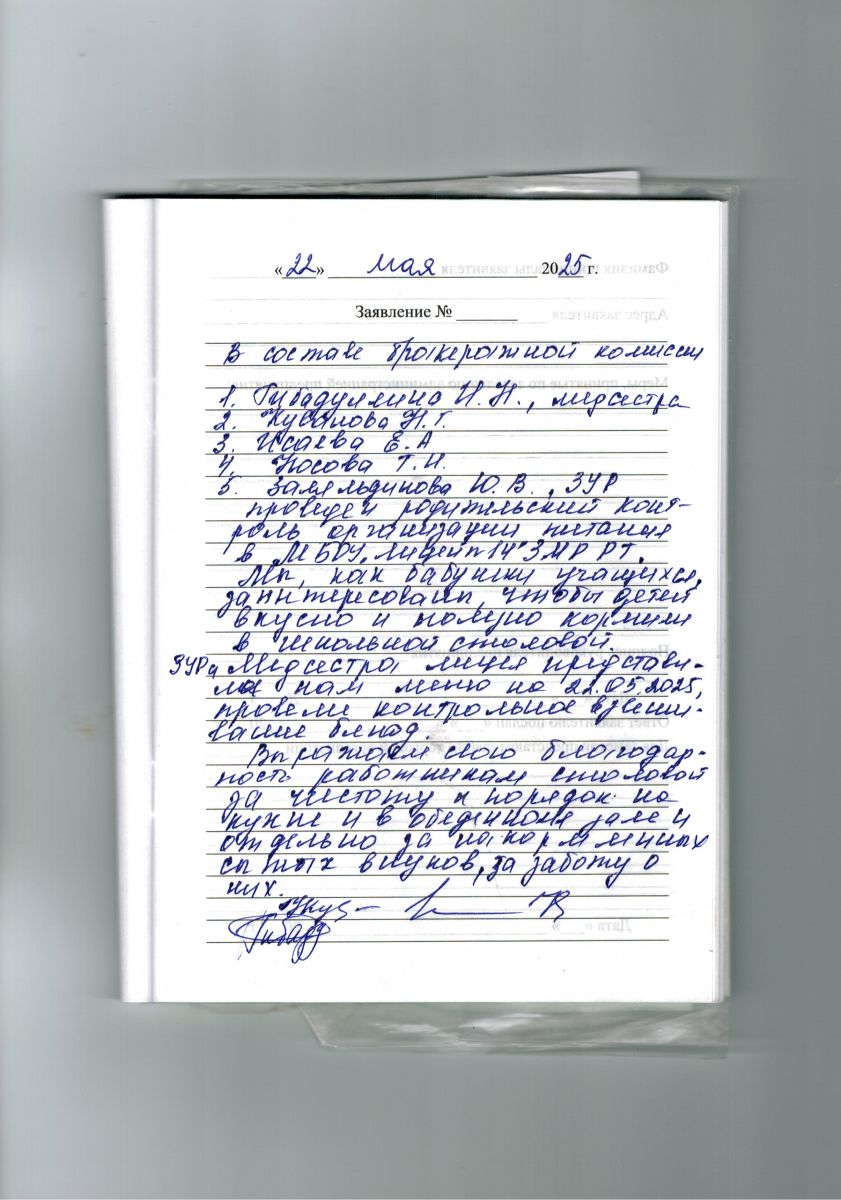 «22» мая 2025 г.
Заявление №
В составе бракеражной комиссии
1. Гибадуллина Н.Н., медсестра
2. Кусалова Н.Г.
3. Исаева Е.А
4. Носова Т.Н.
5. Замяльдинова Ю.В., ЗУР
проведен родительский конт-
роль организации питания
в МБОУ "Лицей №14" ЗМР РТ.
Мы, как бабушки учащихся,
заинтересованы, чтобы детей
вкусно и полезно кормили
в школьной столовой.
Медсестра лицея представи-
ла нам меню на 22.05.2025,
провели контрольное взвеши-
вание блюд.
Выражаем свою благодар-
ность работникам столовой
за чистоту и порядок на
кухне и в обеденном зале и
отдельно за накормленных
сытых внуков, за заботу о
них.